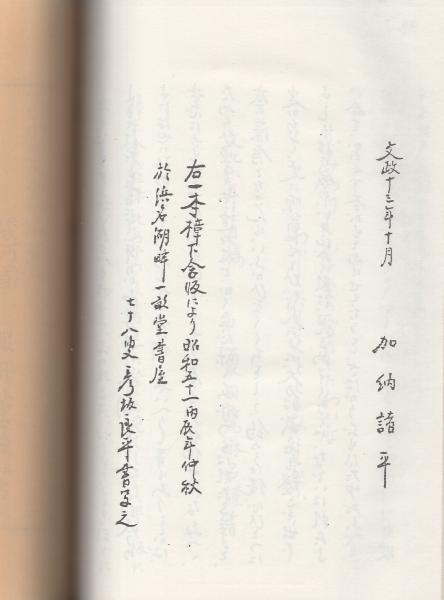 文政十三年十月
加納諸平
右一本樟下舎版により昭和五十一丙辰年仲秋
於浜名湖畔一訒堂書屋
七十八叟彦坂良平書写之